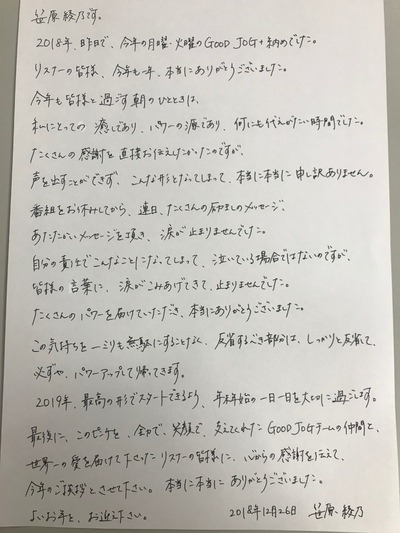 笹原綾乃です。
2018年、昨日で、今年の月曜、火曜のGOOD JOG+納めでした。
リスナーの皆様、今年も一年、本当にありがとうございました。
今年も皆様と過ごす朝のひとときは、
私にとっての癒しであり、パワーの源であり、何にも代えがたい時間でした。
たくさんの感謝を直接お伝えしたかったのですが、
声を出すことができず、こんな形となってしまって、本当に本当に申し訳ありません。
番組をお休みしてから、連日、たくさんの励ましのメッセージ、
あたたかいメッセージを頂き、涙が止まりませんでした。
自分の責任でこんなことになってしまって、泣いている場合ではないのですが、
皆様の言葉に、涙がこみあげてきて、止まりませんでした。
たくさんのパワーを届けていただき、本当にありがとうございました。
この気持ちを一ミリも無駄にすることなく、反省するべき部分は、しっかりと反省して、
必ずや、パワーアップして帰ってきます。
2019年、最高の形でスタートできるよう、年末年始の一日一日を大切に過ごします。
最後に、このピンチを、全力で、笑顔で、支えてくれたGOOD JOGチームの仲間と、
世界一の愛を届けて下さったリスナーの皆様に、心からの感謝を伝えて、
今年のご挨拶とさせて下さい。本当に本当にありがとうございました。
よいお年を、お迎え下さい。 2018年12月26日 笹原綾乃